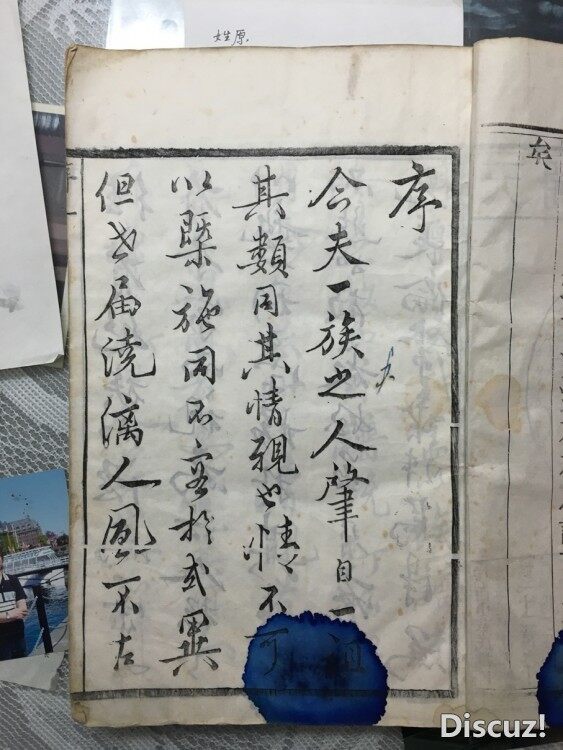 姓原
矣
序
今夫一族之人肇自一
其類同其情親也情不可
以槩施同不容於或異
但世届澆漓人風不古
Discuz!